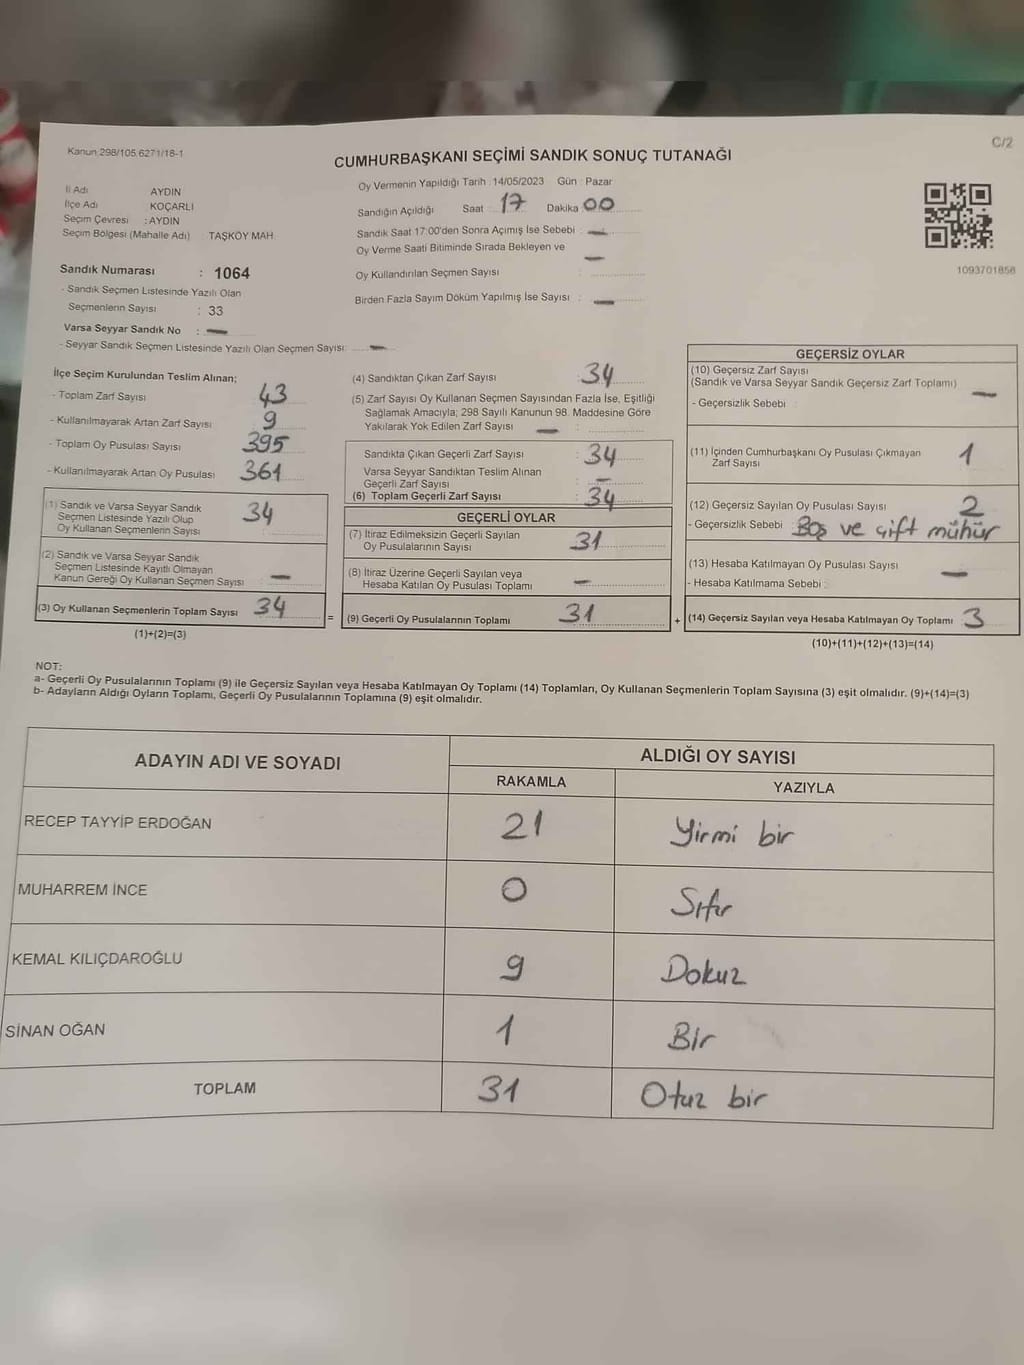 Kanun 298/105 6271/18-1
C/2
CUMHURBAŞKANI SEÇİMİ SANDIK SONUÇ TUTANAĞI
İl Adı AYDIN
İlçe Adı KOÇARLI
Seçim Çevresi : AYDIN
Seçim Bölgesi (Mahalle Adı) : TAŞKÖY MAH.
Sandık Numarası : 1064
- Sandık Seçmen Listesinde Yazılı Olan
Seçmenlerin Sayısı : 33
Varsa Seyyar Sandık No : —
- Seyyar Sandık Seçmen Listesinde Yazılı Olan Seçmen Sayısı: —
Oy Vermenin Yapıldığı Tarih : 14/05/2023 Gün : Pazar
Sandığın Açıldığı Saat : 17 Dakika 00
Sandık Saat 17:00'den Sonra Açımış İse Sebebi : —
Oy Verme Saati Bitiminde Sırada Bekleyen ve —
Oy Kullandırılan Seçmen Sayısı :
Birden Fazla Sayım Döküm Yapılmış İse Sayısı : —
1093701856
İlçe Seçim Kurulundan Teslim Alınan;
- Toplam Zarf Sayısı : 43
- Kullanılmayarak Artan Zarf Sayısı : 9
- Toplam Oy Pusulası Sayısı : 395
- Kullanılmayarak Artan Oy Pusulası : 361
(1) Sandık ve Varsa Seyyar Sandık
Seçmen Listesinde Yazılı Olup
Oy Kullanan Seçmenlerin Sayısı : 34
(2) Sandık ve Varsa Seyyar Sandık
Seçmen Listesinde Kayıtlı Olmayan
Kanun Gereği Oy Kullanan Seçmen Sayısı : —
(3) Oy Kullanan Seçmenlerin Toplam Sayısı : 34
(1)+(2)=(3)
=
(4) Sandıktan Çıkan Zarf Sayısı : 34
(5) Zarf Sayısı Oy Kullanan Seçmen Sayısından Fazla İse, Eşitliği
Sağlamak Amacıyla; 298 Sayılı Kanunun 98. Maddesine Göre
Yakılarak Yok Edilen Zarf Sayısı — :
Sandıkta Çıkan Geçerli Zarf Sayısı : 34
Varsa Seyyar Sandıktan Teslim Alınan
Geçerli Zarf Sayısı : —
(6) Toplam Geçerli Zarf Sayısı : 34
GEÇERLİ OYLAR
(7) İtiraz Edilmeksizin Geçerli Sayılan
Oy Pusulalarının Sayısı : 31
(8) İtiraz Üzerine Geçerli Sayılan veya
Hesaba Katılan Oy Pusulası Toplamı : —
(9) Geçerli Oy Pusulalarının Toplamı : 31
+
GEÇERSİZ OYLAR
(10) Geçersiz Zarf Sayısı
(Sandık ve Varsa Seyyar Sandık Geçersiz Zarf Toplamı) —
- Geçersizlik Sebebi :
(11) İçinden Cumhurbaşkanı Oy Pusulası Çıkmayan
Zarf Sayısı 1
(12) Geçersiz Sayılan Oy Pusulası Sayısı 2
- Geçersizlik Sebebi : Boş ve çift mühür
(13) Hesaba Katılmayan Oy Pusulası Sayısı —
- Hesaba Katılmama Sebebi :
(14) Geçersiz Sayılan veya Hesaba Katılmayan Oy Toplamı : 3
(10)+(11)+(12)+(13)=(14)
NOT:
a- Geçerli Oy Pusulalarının Toplamı (9) ile Geçersiz Sayılan veya Hesaba Katılmayan Oy Toplamı (14) Toplamları, Oy Kullanan Seçmenlerin Toplam Sayısına (3) eşit olmalıdır. (9)+(14)=(3)
b- Adayların Aldığı Oyların Toplamı, Geçerli Oy Pusulalarının Toplamına (9) eşit olmalıdır.
ADAYIN ADI VE SOYADI ALDIĞI OY SAYISI
RAKAMLA YAZIYLA
RECEP TAYYİP ERDOĞAN 21 Yirmi bir
MUHARREM İNCE 0 Sıfır
KEMAL KILIÇDAROĞLU 9 Dokuz
SİNAN OĞAN 1 Bir
TOPLAM 31 Otuz bir